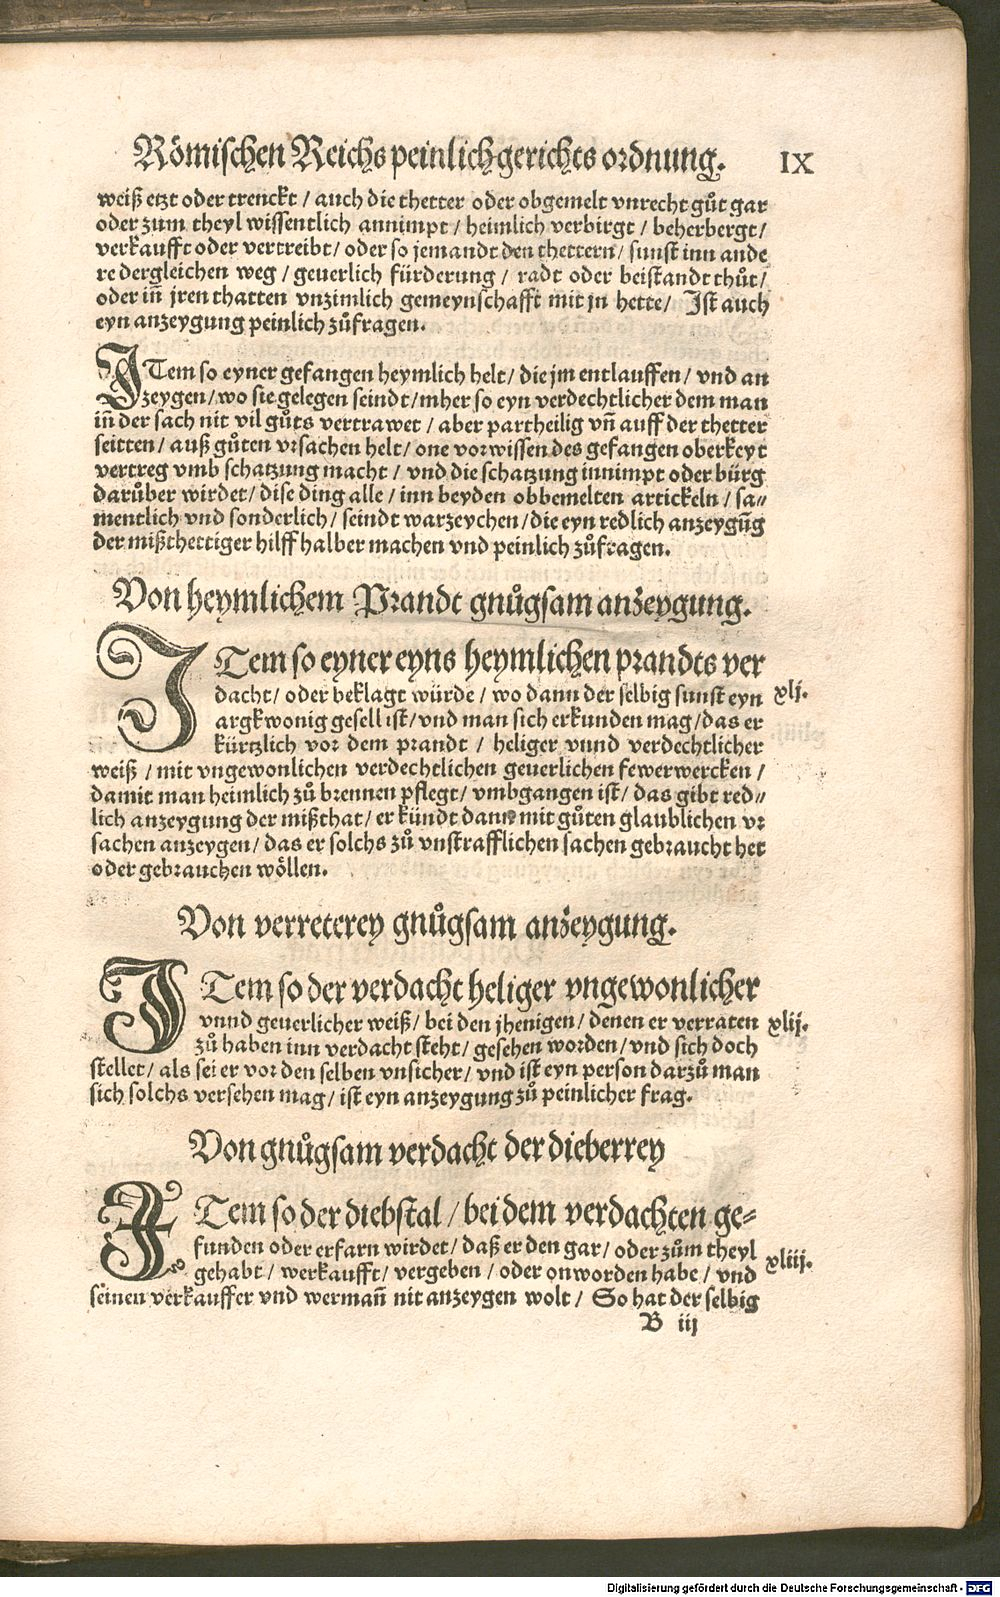 Römischen Reichs peinlich gerichts ordnung. IX
weiß etzt oder trenckt / auch die thetter oder obgemelt vnrecht gůt gar
oder zum theyl wissentlich annimpt / heimlich verbirgt / beherbergt /
verkaufft oder vertreibt / oder so jemandt den thettern / sunst inn ande
re dergleichen weg / geuerlich fürderung / radt oder beistandt thůt /
oder iñ jren thatten vnzimlich gemeynschafft mit jn hette / Ist auch
eyn anzeygung peinlich zůfragen.
ITem so eyner gefangen heymlich helt / die jm entlauffen / vnd an
zeygen / wo sie gelegen seindt / mher so eyn verdechtlicher dem man
iñ der sach nit vil gůts vertrawet / aber partheilig vñ auff der thetter
seitten / auß gůten vrsachen helt / one vorwissen des gefangen oberkeyt
vertreg vmb schatzung macht / vnd die schatzung innimpt oder bürg
darůber wirdet / dise ding alle / inn beyden obbemelten artickeln / sa⸗
mentlich vnd sonderlich / seindt warzeychen / die eyn redlich anzeygūg
der mißthettiger hilff halber machen vnd peinlich zůfragen.
Von heymlichem Prandt gnůgsam anzeygung.
ITem so eyner eyns heymlichen prandts ver
dacht / oder beklagt würde / wo dann der selbig sunst eyn xlj.
argkwonig gesell ist / vnd man sich erkunden mag / das er
kürtzlich vor dem prandt / heliger vnnd verdechtlicher
weiß / mit vngewonlichen verdechtlichen geuerlichen fewerwercken /
damit man heimlich zů brennen pflegt / vmbgangen ist / das gibt red⸗
lich anzeygung der mißthat / er kündt dann mit gůten glaublichen vr
sachen anzeygen / das er solchs zů vnstrafflichen sachen gebraucht het
oder gebrauchen wöllen.
Von verreterey gnůgsam anzeygung.
ITem so der verdacht heliger vngewonlicher
vnnd geuerlicher weiß / bei den jhenigen / denen er verraten xlij.
zů haben inn verdacht steht / gesehen worden / vnd sich doch
stellet / als sei er vor den selben vnsicher / vnd ist eyn person darzů man
sich solchs versehen mag / ist eyn anzeygung zů peinlicher frag.
Von gnůgsam verdacht der dieberrey
ITem so der diebstal / bei dem verdachten ge⸗
funden oder erfarn wirdet / daß er den gar / oder zům theyl
gehabt / werkaufft / vergeben / oder onworden habe / vnd xliij.
seinen verkauffer vnd wermañ nit anzeygen wolt / So hat der selbig
B iij
Digitalisierung gefördert durch die Deutsche Forschungsgemeinschaft - DFG